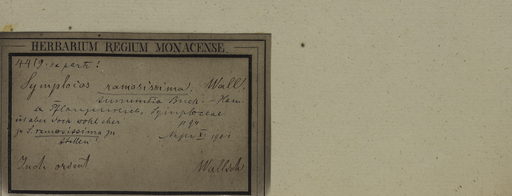 HERBARIUM REGIUM MONACENSE.
4419. ex parte!
Symplocos ramosissima. Wall.
Buch. - Ham.
Pflanzenreich, Symplocaceae
ist aber doch wohl eher p 94
zu S. ramosissima zu 1901
stellen!
Ind. orient. Wallich